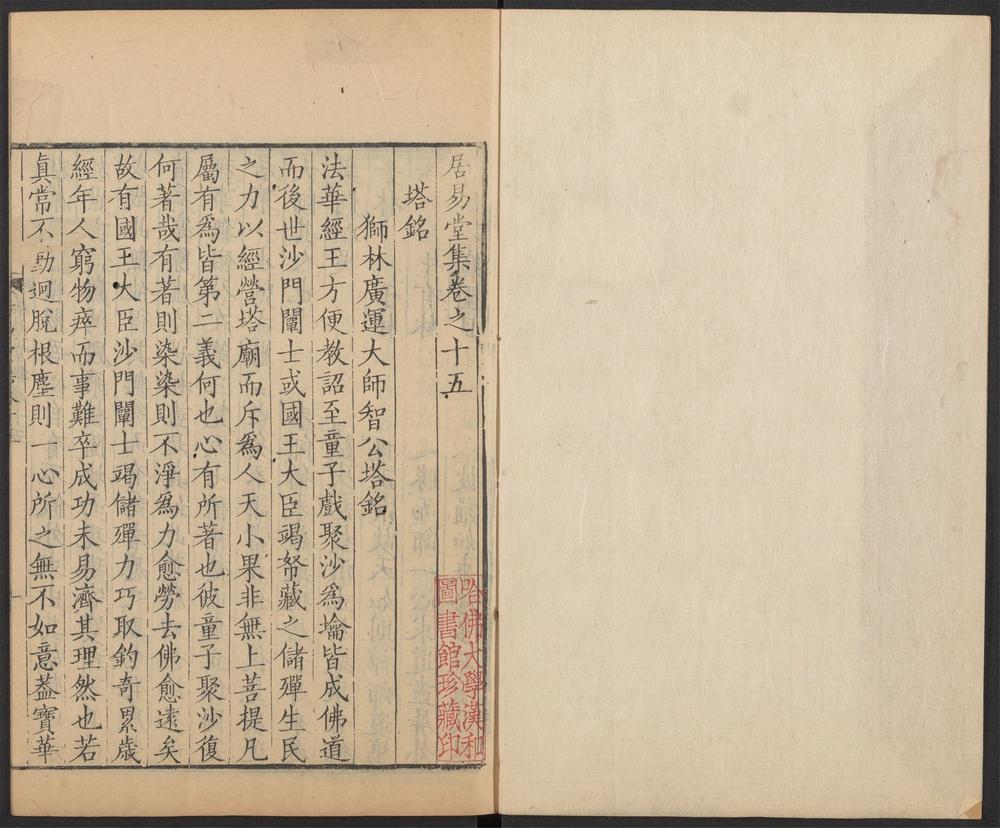 居易堂集卷之十五
塔銘
獅林廣運大師智公塔銘
法華經王方便教詔至童子戲聚沙爲墖皆成佛道
而後世沙門闡士或國王大臣竭帑藏之儲殫生民
之力以經營塔廟而斥爲人天小果非無上菩提凡
屬有爲皆第二義何也心有所著也彼童子聚沙復
何著哉有著則染染則不淨爲力愈勞去佛愈遠矣
故有國王大臣沙門闡士竭儲殫力巧取釣奇累歲
經年人窮物瘁而事難卒成功未易濟其理然也若
眞常不動迥脫根塵則一心所之無不如意葢寶華
哈佛大學漢和
圖書館珍藏印